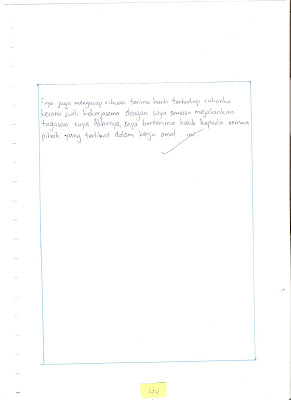 Saya juga mengucap ribuan terima kasih terhadap rakanku
kerana sudi bekerjasama dengan saya semasa mejalankan
tugasan saya. Akhirnya, saya berterima kasih kepada semua
pihak yang terlibat dalam kerja amal ini.